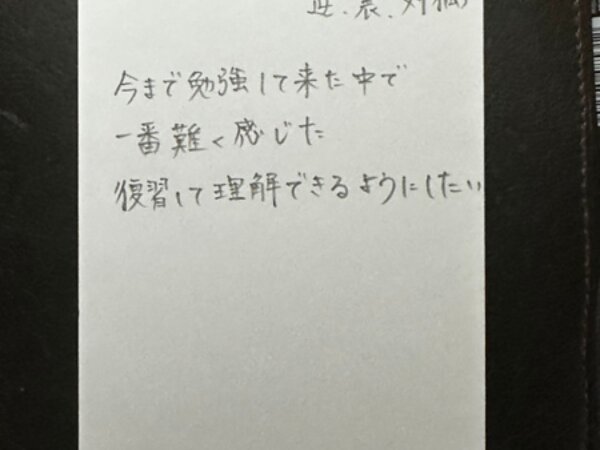 逆、裏、対偶
今まで勉強して来た中で
一番難く感じた
復習して理解できるようにしたい